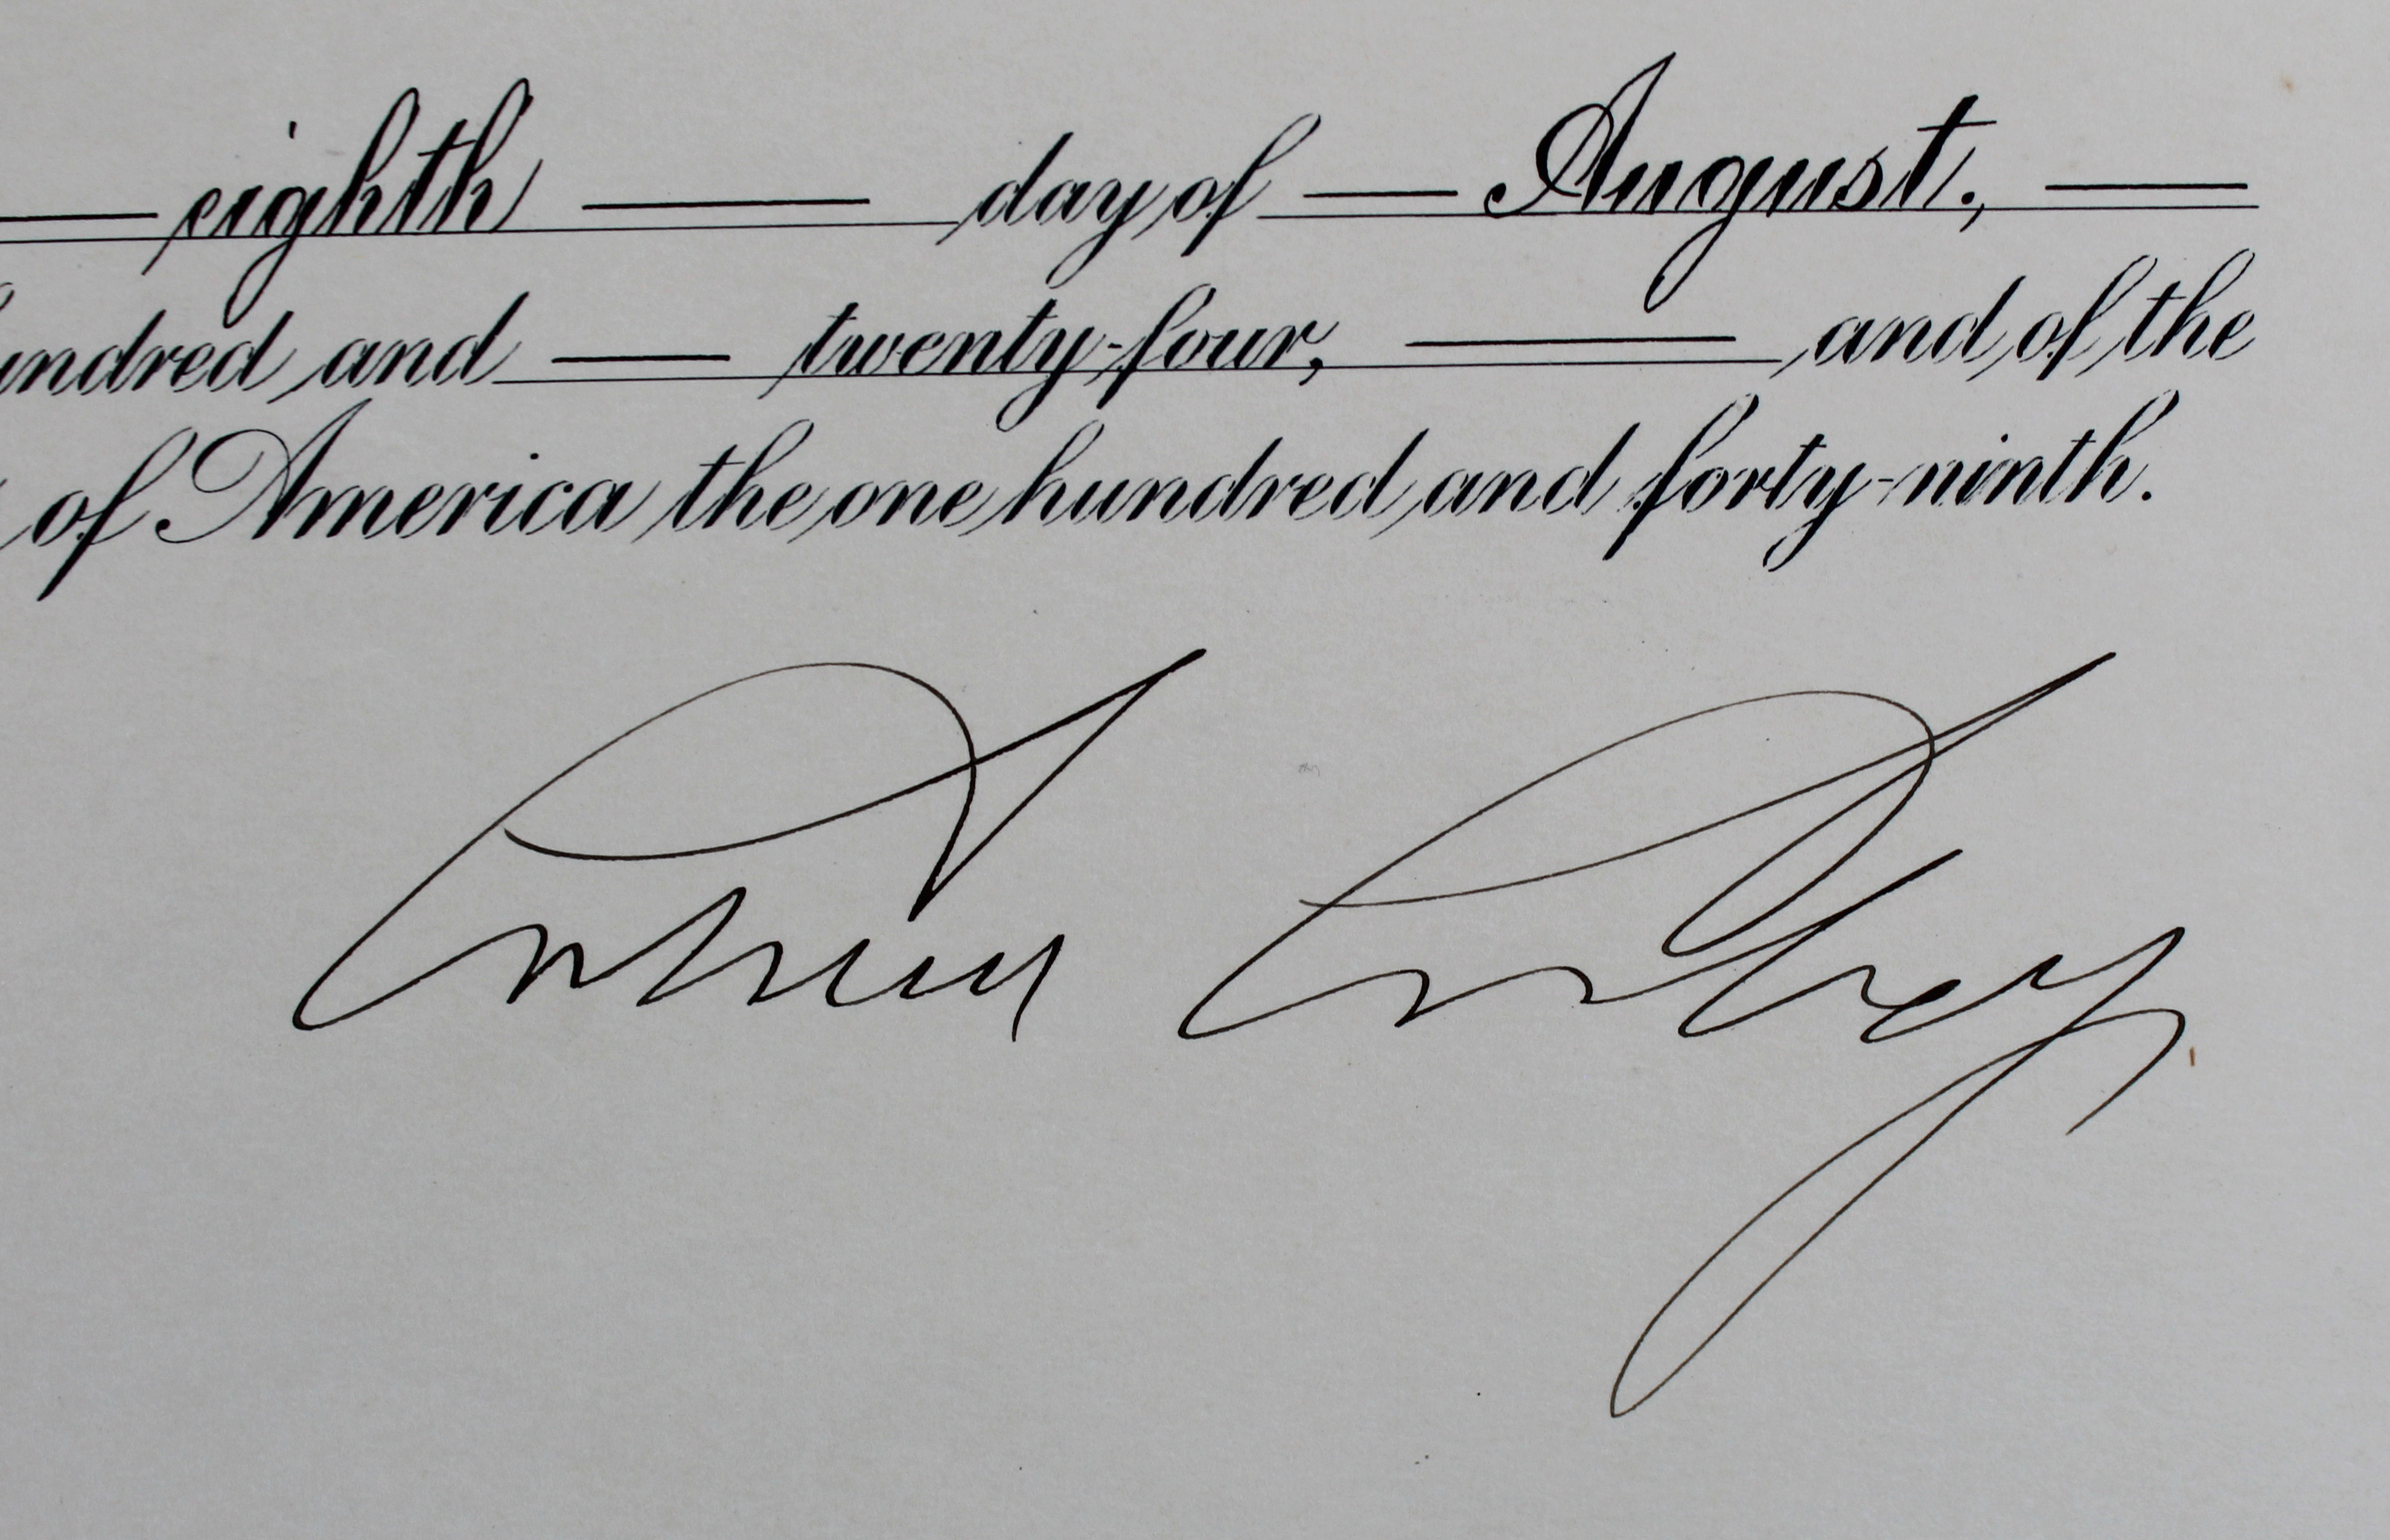 eighth — day of — August., —
undred and — twenty-four, — and of the
of America the one hundred and forty-ninth.
Calvin Coolidge